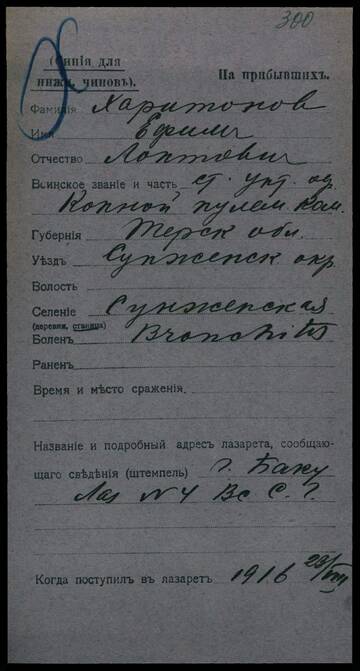 300
(Синія для
нижн. чиновъ).
На прибывшихъ.
Фамилія Харитонов
Имя Ефимъ
Отчество
Воинское званіе и часть ст. унт. оф.
Конной пулем. ком.
Губернія Терск обл.
Уѣздъ Сунженск окр.
Волость
Селеніе Сунженская
(деревня, станица)
Боленъ Bronchitis
Раненъ
Время и мѣсто сраженія.
Названіе и подробный адресъ лазарета, сообщаю-
щаго свѣдѣнія (штемпель) г. Баку
Лаз N 4 Вс С. Г.
Когда поступилъ въ лазаретъ 1916 23/VIII